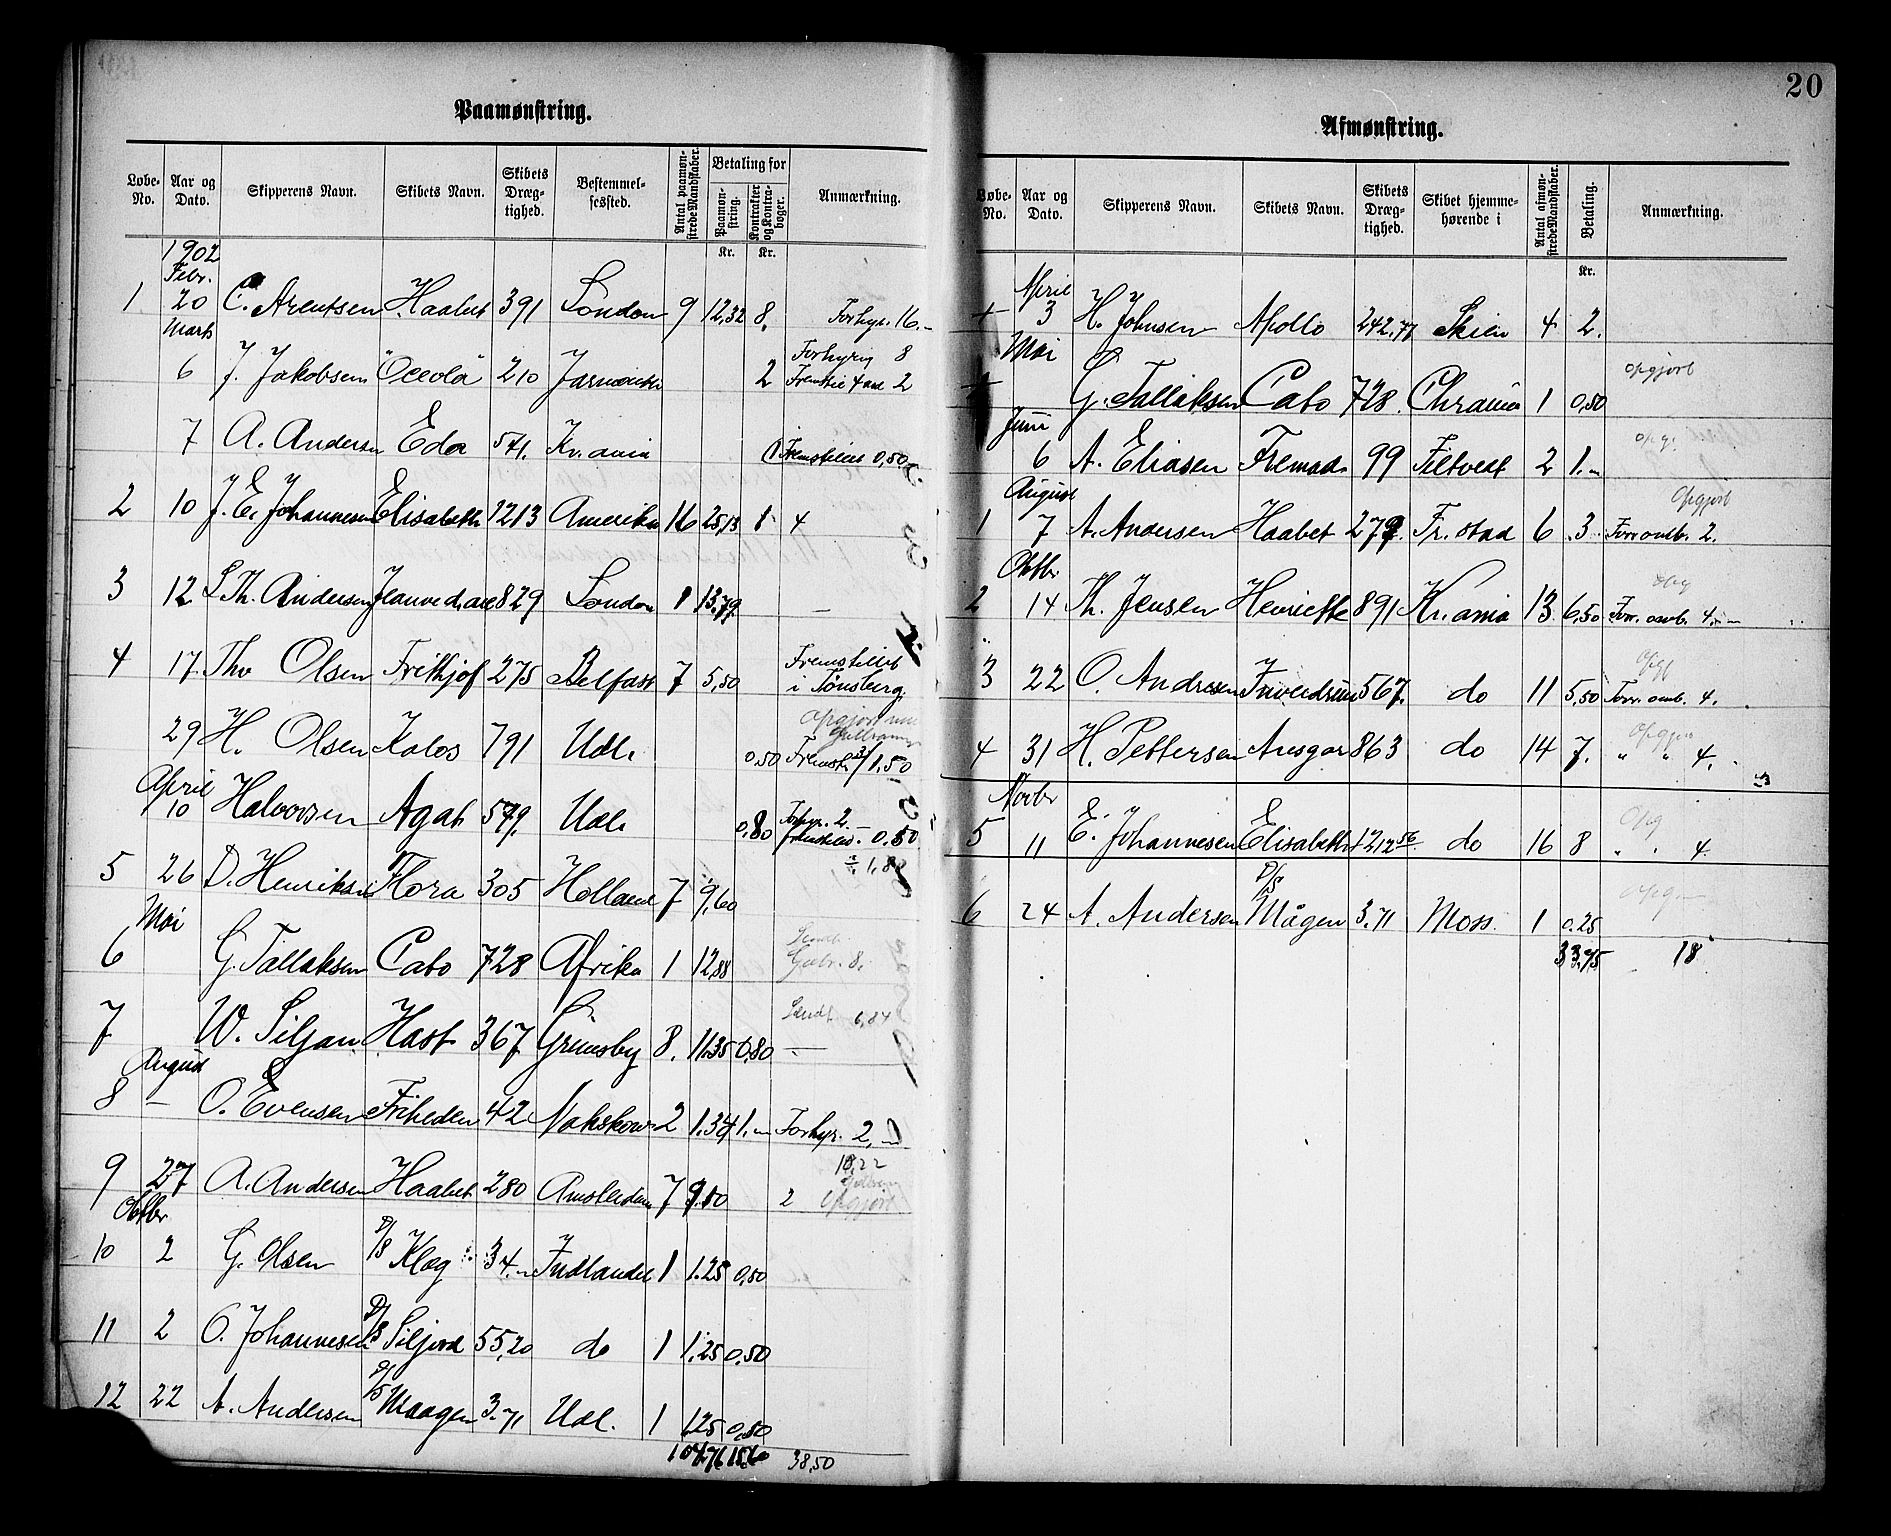 20
Paamønstring.
Løbe-No. Aar og Dato. Skipperens Navn. Skibets Navn. Skibets Dræg-tighed. Bestemmel-sessted. Antal paamøn-strede Mandskaber. Betaling for Paamøn-string. Kontrakter og Kontra-bøger. Anmærkning.
Kr. Kr.
1902
Febr.
1 20 C. Arentsen Haabet 391 London 9 12,32 8. Forhyr. 16.-
Marts
6 J. Jakobsen "Oceola" 210 2 Forhyrig 8
2
7 A. Andersen Eda 571. Kr.ania 1 Fremstillet 0,50
2 10 J. E. Johannesen Elisabeth 1213 Amerika 16 25,13 1 4
3 12. S. Th. Andersen 829 London 13,79. –
4 17. Thv Olsen Frithjof 275 Belfast 7 5,50 Fremstillet
i Tønsberg
29 H. Olsen Kalos 791 Udl. 0,50 Fremst. 1.50
April
10 Halvorsen Agat 579. Udl. 0,80 Forhyr. 2.
0.50
1,80
5 26 D. Henriksen Flora 305 Holland 7 9,60
Mai
6 G. Tallaksen Cato 728 Afrika 1 12,88 8.
7 W. Siljan Hast 367 Grimsby 8. 11,35 0,80 – 6,84
August
8 – O. Evensen Friheden 42 Nakskow 2 1.34 1.- Forhyr. 2,-
9 27 A. Andersen Haabet 280 Amsterdam 7 2 Opgjort
Oktbr
10 2 G. Olsen D/S Klog 34.- Indlandet 1 1.25 0,50
11 2 O. Johannesen D/S Siljord 55,20 do 1 1,25 0,50
12 22 A. Andersen D/S Maagen 3.71 Udl. 1 1,25 0,50
104,76 15,60 38,50
Afmønstring.
Løbe-No. Aar og Dato. Skipperens Navn. Skibets Navn. Skibets Dræg-tighed. Skibet hjemme-hørende i Antal afmøn-strede Mandskaber. Betaling. Anmærkning.
Kr.
April
+ 3 H. Johnsen Apollo 242.77 Skien 4 2.
Mai
+ G. Tallaksen Cato 728 Chrania 1 0,50 opgjort
Juni
6 A. Eliasen Fremad 99 Filtvedt 2 1.- opg.
August
1 7 A. Andersen Haabet 279. Fr.stad 6 3 Forr omb. 2. Opgjort
Oktbr
2 14 Th. Jensen Henriette 891 Kr.ania 13 6,50 Forr. omb. 4.- opg
3 22 O. Andresen 567. do 11 5,50 Forr. omb. 4.
4 31 H. Pettersen Ansgar 863 do 14 7. " " 4.
Novbr
5 11 E. Johannesen Elisabeth 1212 56 do 16 8 " " 4. Opg
6 24 A. Andersen D/S Mågen 3.71 Moss. 1 0.25 opg.
33,75 18